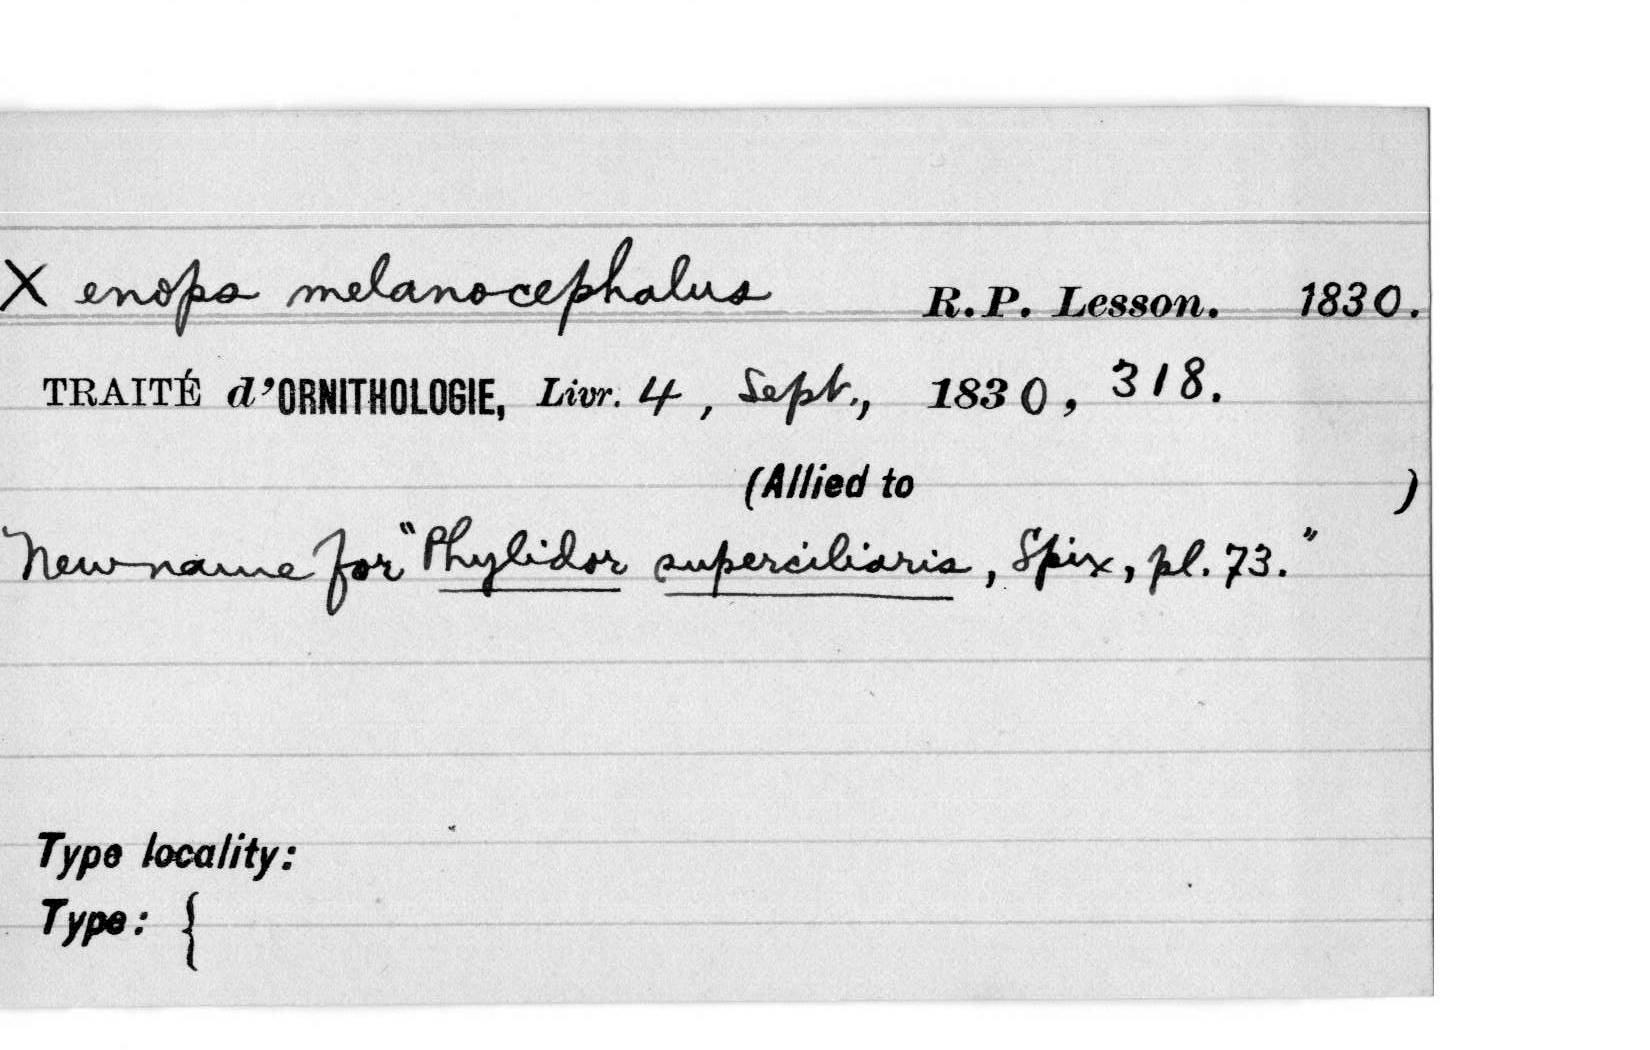 Xenops melanocephalus R.P. Lesson. 1830.
TRAITÉ d'ORNITHOLOGIE, Livr. 4, Sept., 1830, 318.
(Allied to )
New name for "Phylidor superciliaris, Spix, pl. 73."
Type locality:
Type: {